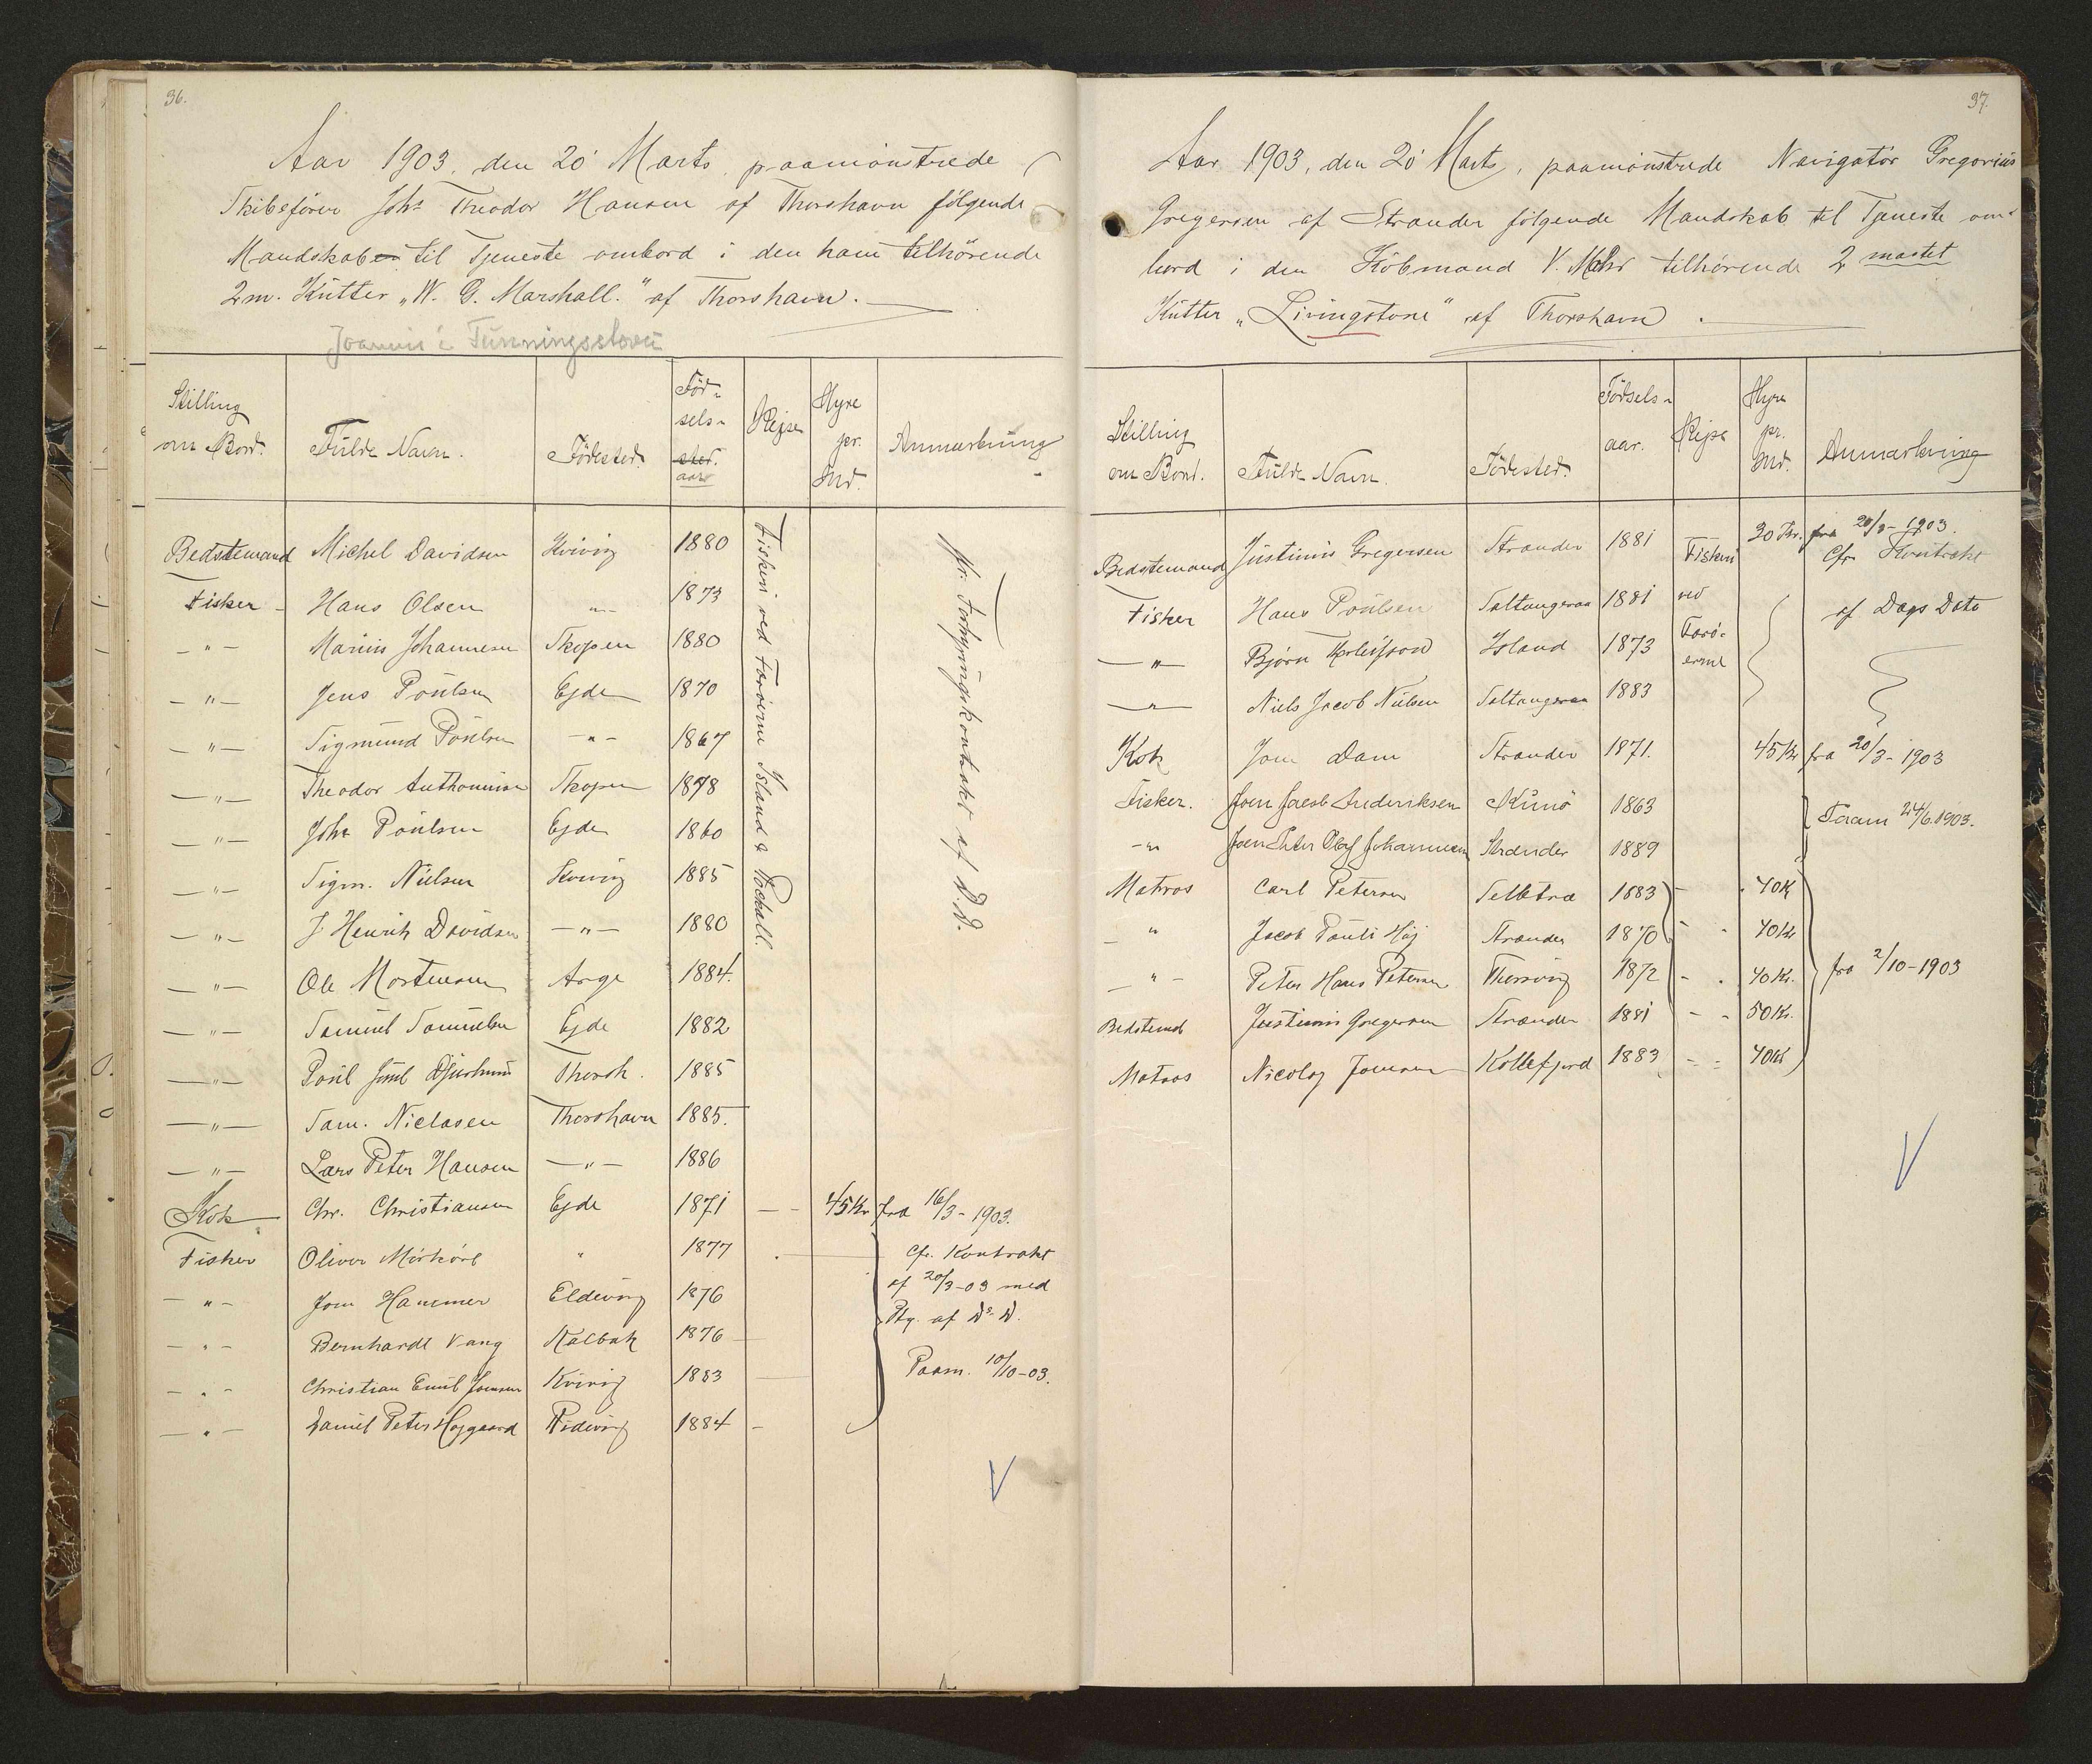 36.
Aar 1903, den 20' Marts, paamönstrede
Skibsförer Johs Theodor Hansen af Thorshavn fölgende
Mandskab til Tjeneste ombord i den ham tilhörende
2 m. Kutter „W. G. Marshall." af Thorshavn.
Joannis i
Stilling om Bord. Fulde Navn. Födested. Födselsaar Rejse Hyre pr. Md. Anmærkning
Fiskeri ved Færöerne Island & Rockall.
pr. Forhyringskontrakt af D.D.
Bedstemand Michel Davidsen Kvivig 1880
Fisker Hans Olsen -"- 1873
-"- Marius Johannesen Skopen 1880
-"- Jens Poulsen Ejde 1870
-"- Sigmund Poulsen -"- 1867
-"- Theodor Anthoniusen Skopen 1878
-"- Johs Poulsen Ejde 1860
-"- Sigm. Nielsen Kvivig 1885
-"- J. Henrik Davidsen -"- 1880
-"- Ole Mortensen Arge 1884.
-"- Samuel Samuelsen Ejde 1882
-"- Poul Djurhuus Thorsh. 1885
-"- Sam. Niclasen Thorshavn 1885.
-"- Lars Peter Hansen -"- 1886
Kok Chr. Christiansen Ejde 1871 - - 45 Kr fra 16/3 - 1903.
Fisker Oliver Mörköre " 1877 cfr. Kontrakt
-"- Jom Hammer Eldevig 1876 af 20/3-03 med
-"- Bernhardt Vang Kalbak 1876 Ptg. af Ds. D.
-"- Christian Emil Joensen Kvivig 1883 Paam. 10/10-03.
-"- Daniel Peter Højgaard 1884
37.
Aar 1903, den 20' Marts, paamönstrede Navigatör Gregorius
Gregersen af Strænder fölgende Mandskab til Tjeneste om-
bord i den Köbmand V. Mohr tilhörende 2 mastet
Kutter „Livingstone" af Thorshavn.
Stilling om Bord. Fulde Navn. Födested. Födselsaar. Rejse Hyre pr. Md. Anmærkning
Bedstemand Justinus Gregersen Strænder 1881 Fiskeri 30 Kr. fra 20/3 - 1903. Cfr. Kontrakt
Fisker Hans Poulsen Saltangeraa 1881 ved af Dags Dato
-"- Björn Island 1873 Færö-
erne
-"- Niels Jacob Nielsen Saltangeraa 1883
Kok Jom Dam Strænder 1871. 45 Kr fra 20/3 - 1903
Fisker. Joen Jacob Frederiksen Kunö 1863 Paam 24/6 1903.
-"- Joen Peter Olaf Johannesen Strænder 1889
Matros Carl Petersen Selletræ 1883 - 40 K
" Jacob Pauli Höj Strænder 1870 - 40 Kr
-"- Peter Hans Petersen Thorsvig 1872 - 40 Kr. fra 2/10 - 1903
Bedstemd Justinus Gregersen Strænder 1881 - - 50 Kr.
Matros Nicolaj Joensen Kollefjord 1883 - - 40 K